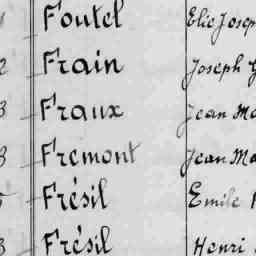 Foutel Elie Josep
2 Frain Joseph
3 Fraux Jean Ma
3 Fremont Jean Ma
Frésil Emile
3 Frésil Henri